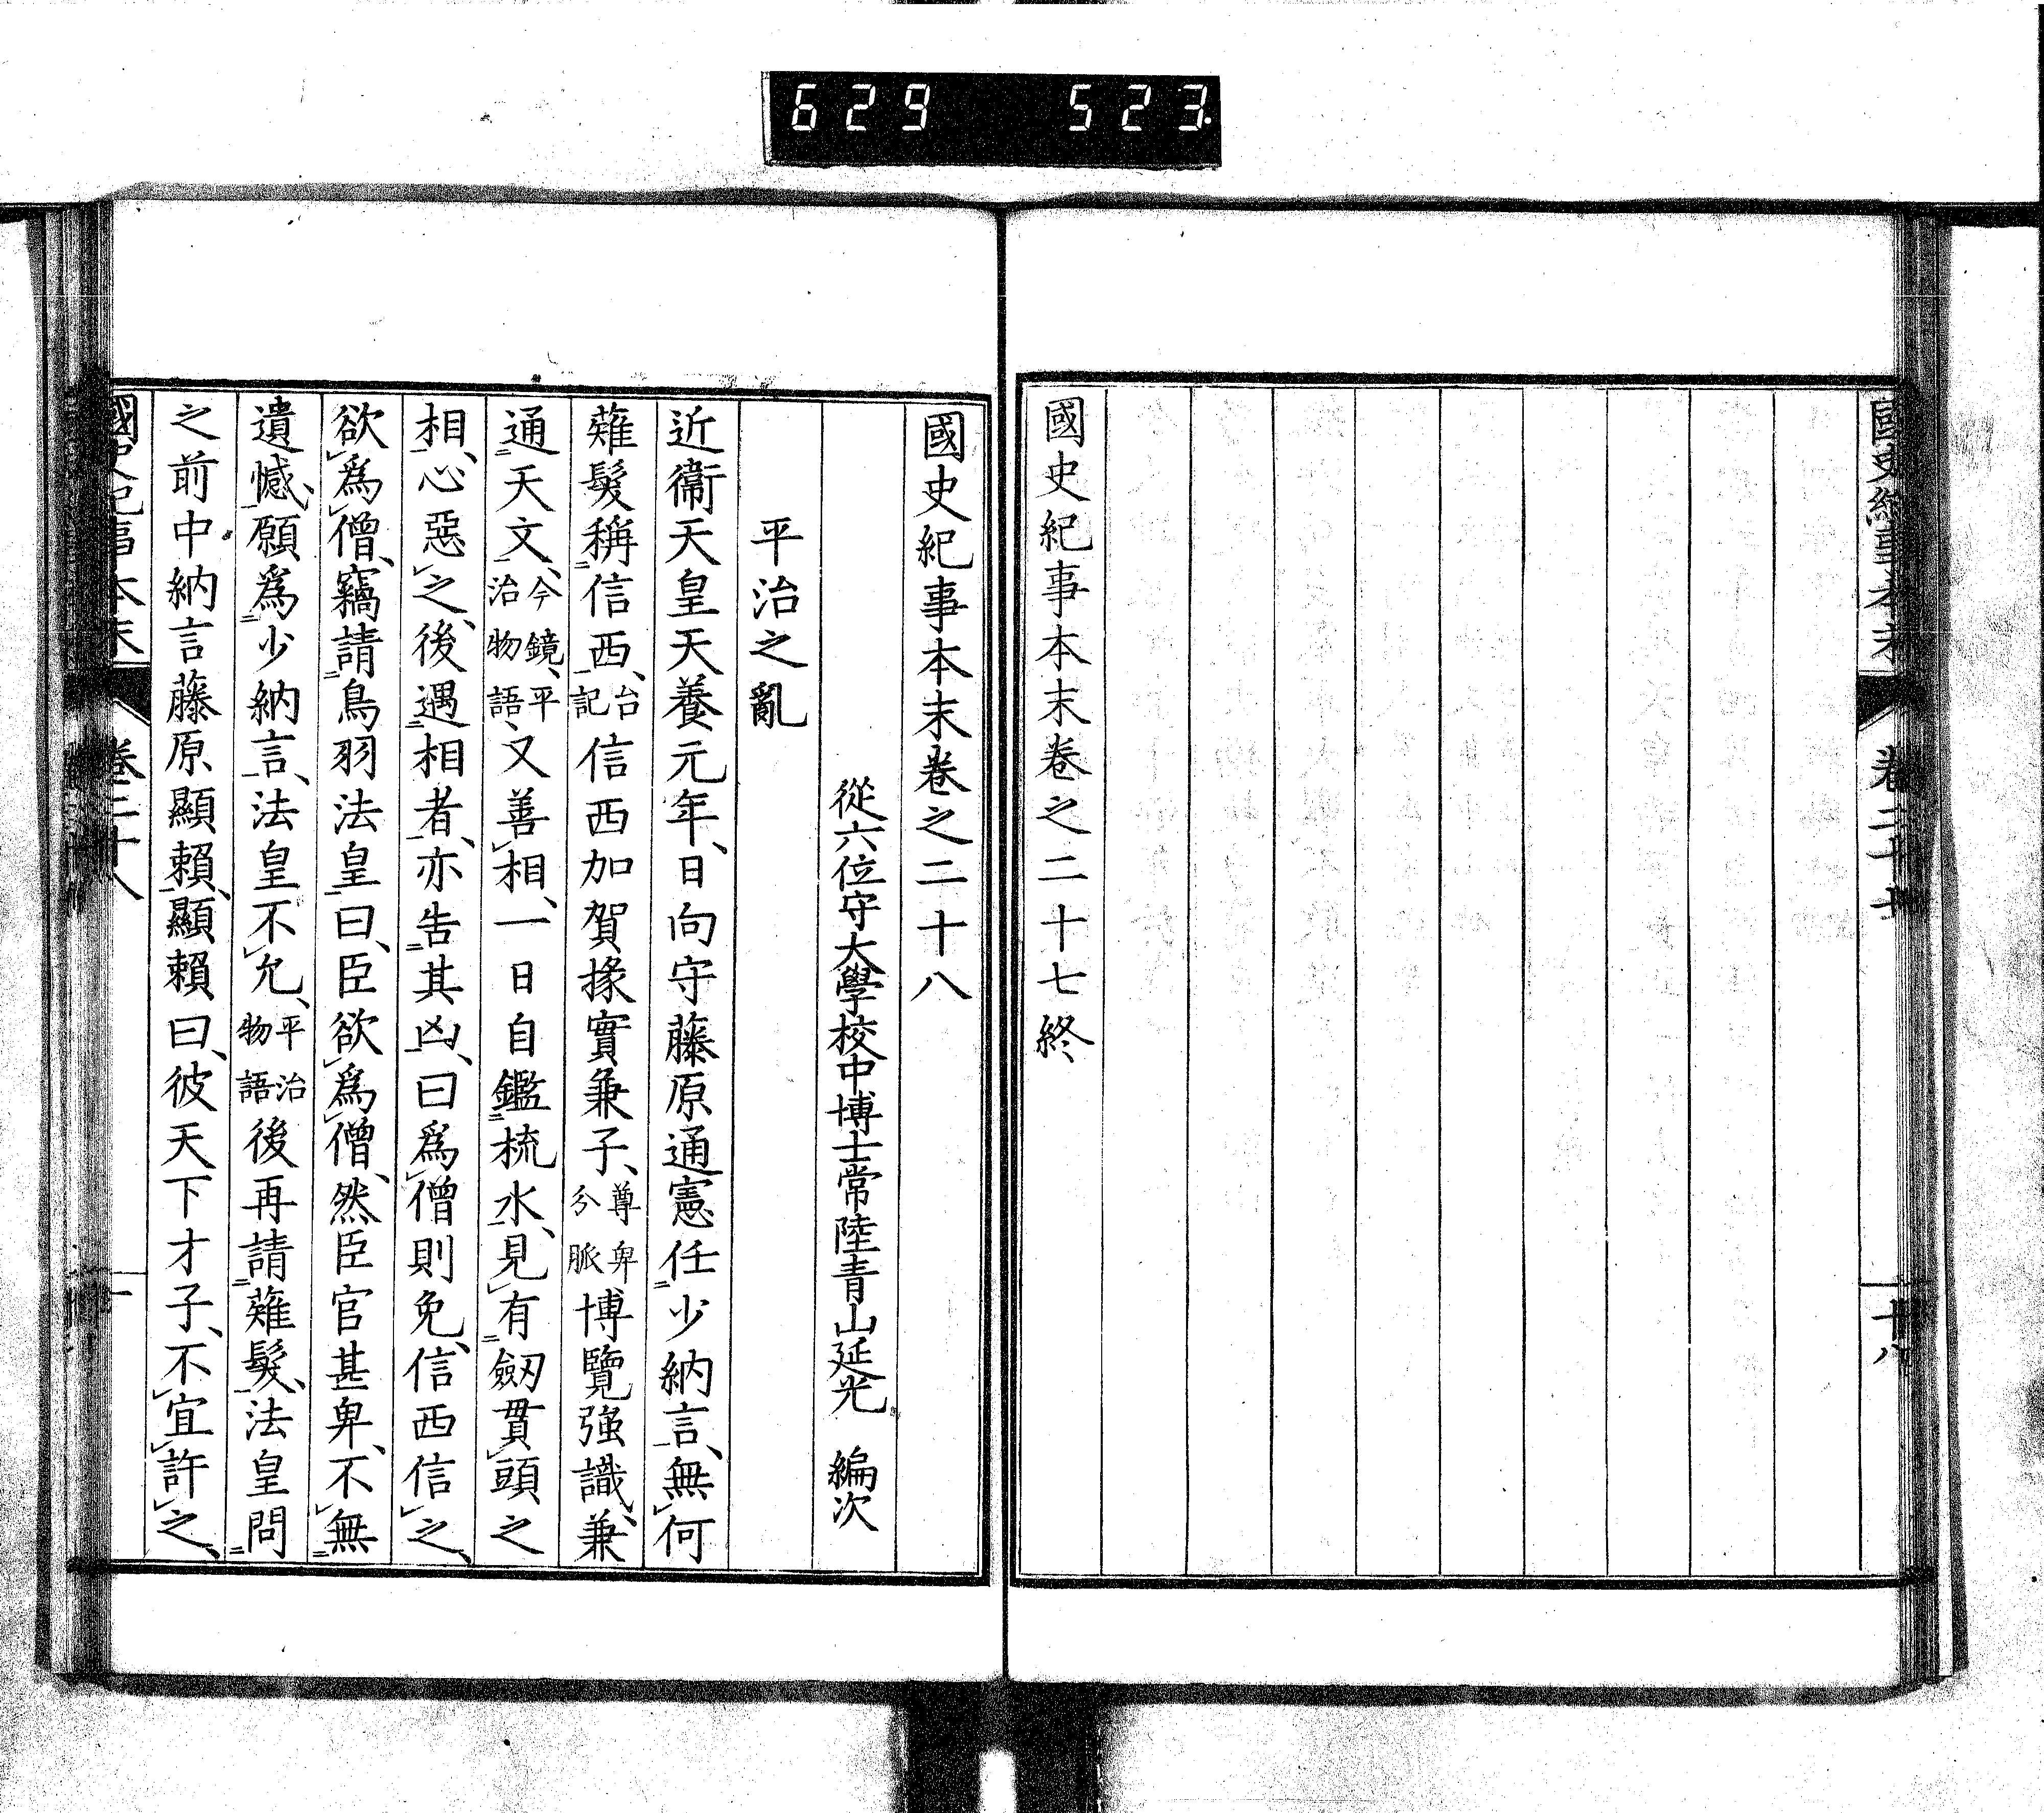 629 523.
國史紀事本末 卷二十七 十八
國史紀事本末卷之二十七終
國史紀事本末卷之二十八
從六位守大學校中博士常陸青山延光 編次
平治之亂
近衞天皇天養元年、日向守藤原通憲任少納言、無何
薙髮稱信西、台記信西加賀掾實兼子、尊卑分脈博覽强識、兼
通天文、今鏡、平治物語、又善相、一日自鑑梳水、見有劔貫頭之
相、心惡之、後遇相者、亦告其凶、曰爲僧則免、信西信之、
欲爲僧、竊請鳥羽法皇曰、臣欲爲僧、然臣官甚卑、不無
遺憾、願爲少納言、法皇不允、平治物語後再請薙髮、法皇問
之前中納言藤原顯賴、顯賴曰、彼天下才子、不宜許之、
國史紀事本末 卷二十八 一